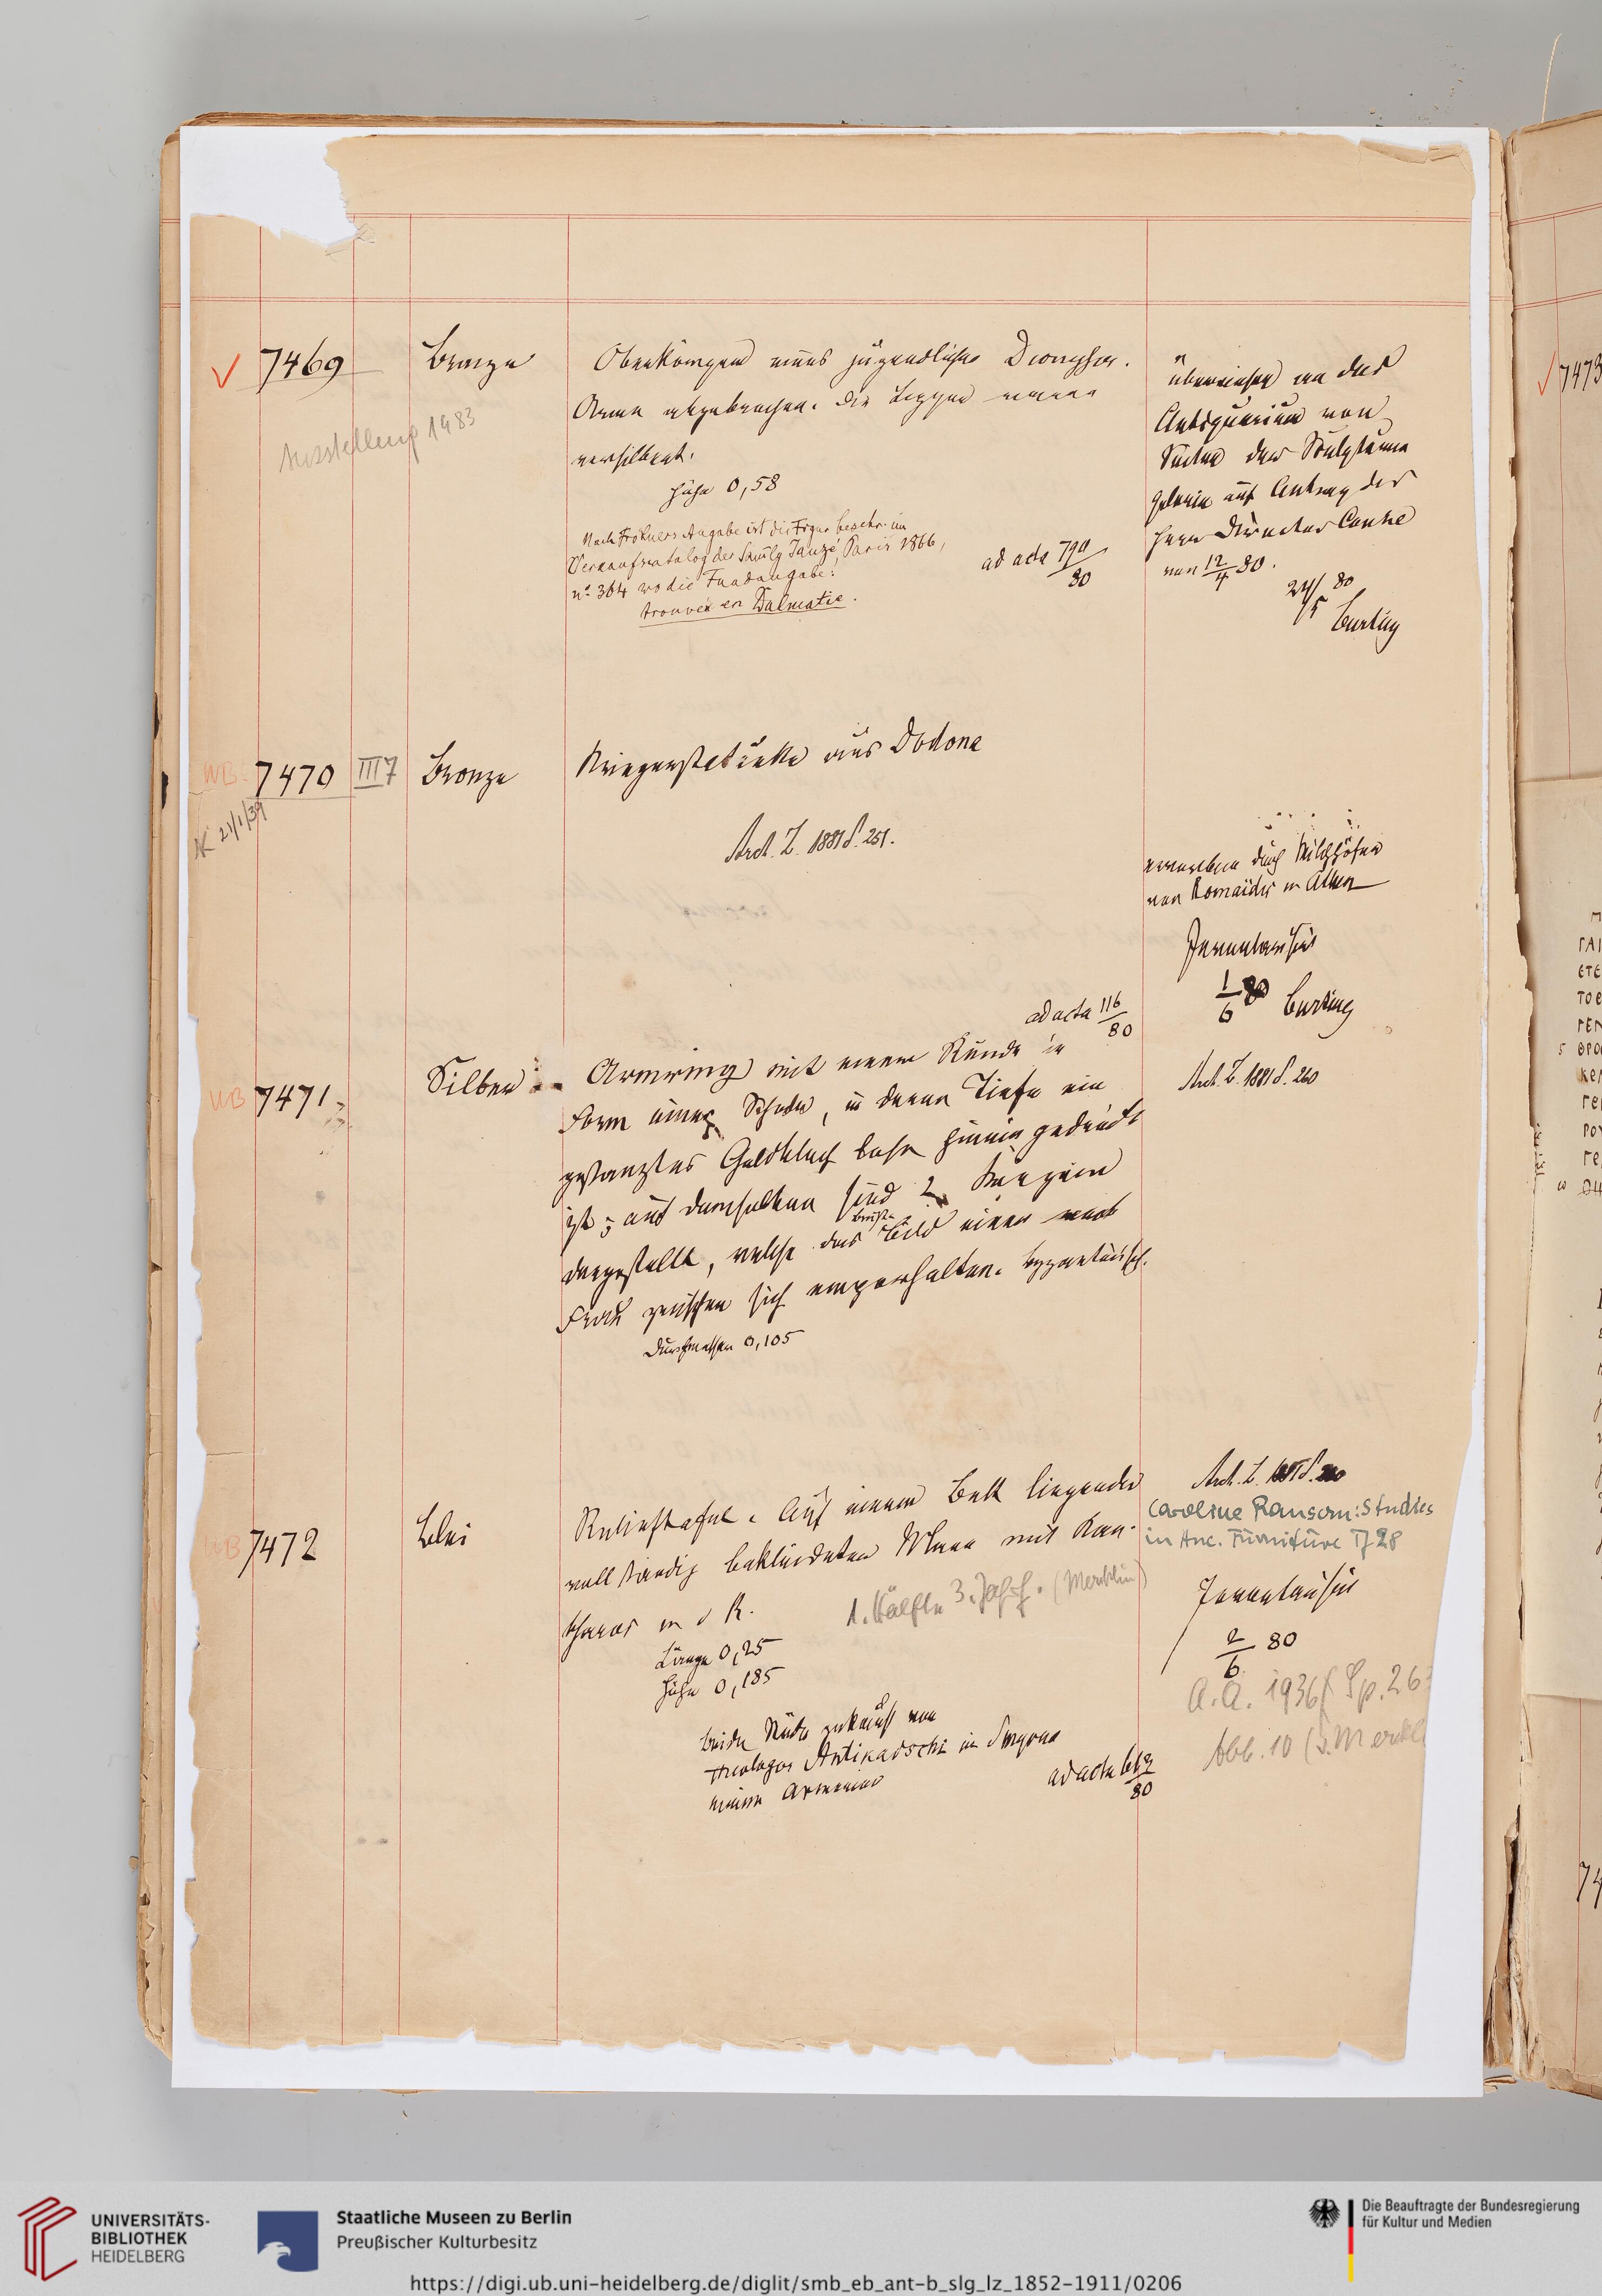 7469
Bronze
Oberkörper eines jugendlichen Dionysos.
Arme abgebrochen. Die Lippen waren
versilbert.
Höhe 0,58
Nach Fröhners Angabe ist die Figur beschr. im
Verkaufscatalog der Smlg Janzé, Paris 1866,
nº 364 wo die Fundangabe:
trouvée en Dalmatie.
ad acta 790/80
überwiesen an das
Antiquarium von
Seiten der Sculpturen
Galerie auf Antrag des
Herrn Director Conze
von 12/4 80.
24/5 80
Curtius
Ausstellung 1983
WB 7470
III 7
Bronze
Kriegerstatuette aus Dodona
AK 21/1/39
Arch. Z. 1881 S. 251.
erworben durch Milchhöfer
von Romaïdis in Athen
Inventarisirt
1/6 80 Curtius
ad acta 116/80
WB 7471
Silber
Armring mit einem Runde in
Form einer Schale, in deren Tiefe ein
gestanztes Goldblech lose hineingedrückt
ist; auf demselben sind 2 Knaben
dargestellt, welche das Brust-Bild einer
Frau zwischen sich emporhalten. byzantinisch.
Durchmesser 0,105
Arch. Z. 1881 S. 260
WB 7472
Blei
Relieftafel. Auf einem Bett liegender
vollständig bekleideter Mann mit Kan-
tharos in d R.
Länge 0,25
Höhe 0,185
1. Hälfte 3. Jah. (Mercklin)
beide Stücke gekauft von
Theologos in Smyrna
einem Armenier
ad acta 612/80
Arch. Z. 1881 S. 260
Caroline Ransom: Studies
in Anc. Furniture 28
Inventarisirt
2/6 80
A.A. 1936 Sp. 263
Abb. 10 (v. Merckl
7473
ΓΑΙ
ΕΤΕ
5
10
UNIVERSITÄTS-
BIBLIOTHEK
HEIDELBERG
Staatliche Museen zu Berlin
Preußischer Kulturbesitz
Die Beauftragte der Bundesregierung
für Kultur und Medien
https://digi.ub.uni-heidelberg.de/diglit/smb_eb_ant-b_slg_lz_1852-1911/0206